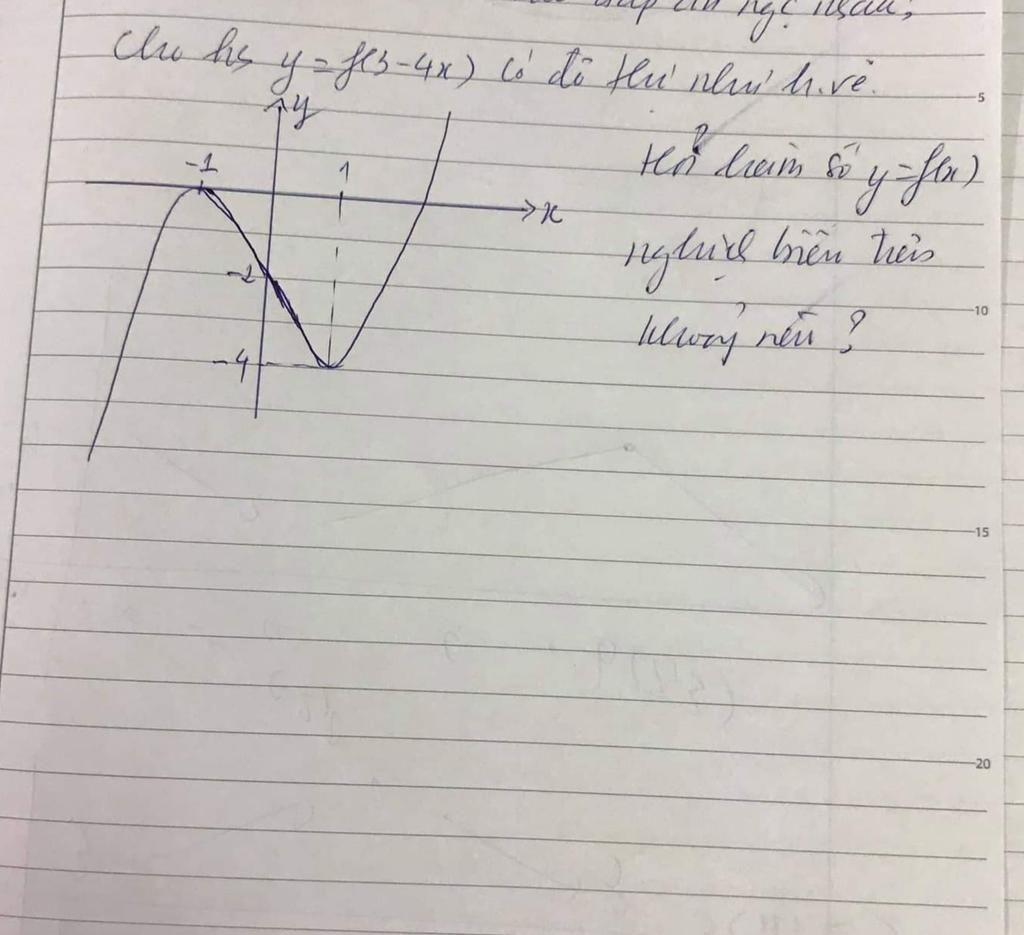 đáp án
Cho hs y = f(3-4x) có đồ thị như h.vẽ.
y
-1
1
x
-2
-4
Hỏi hàm số y = f(x)
nghịch biến trên
khoảng nào ?
5
10
15
20